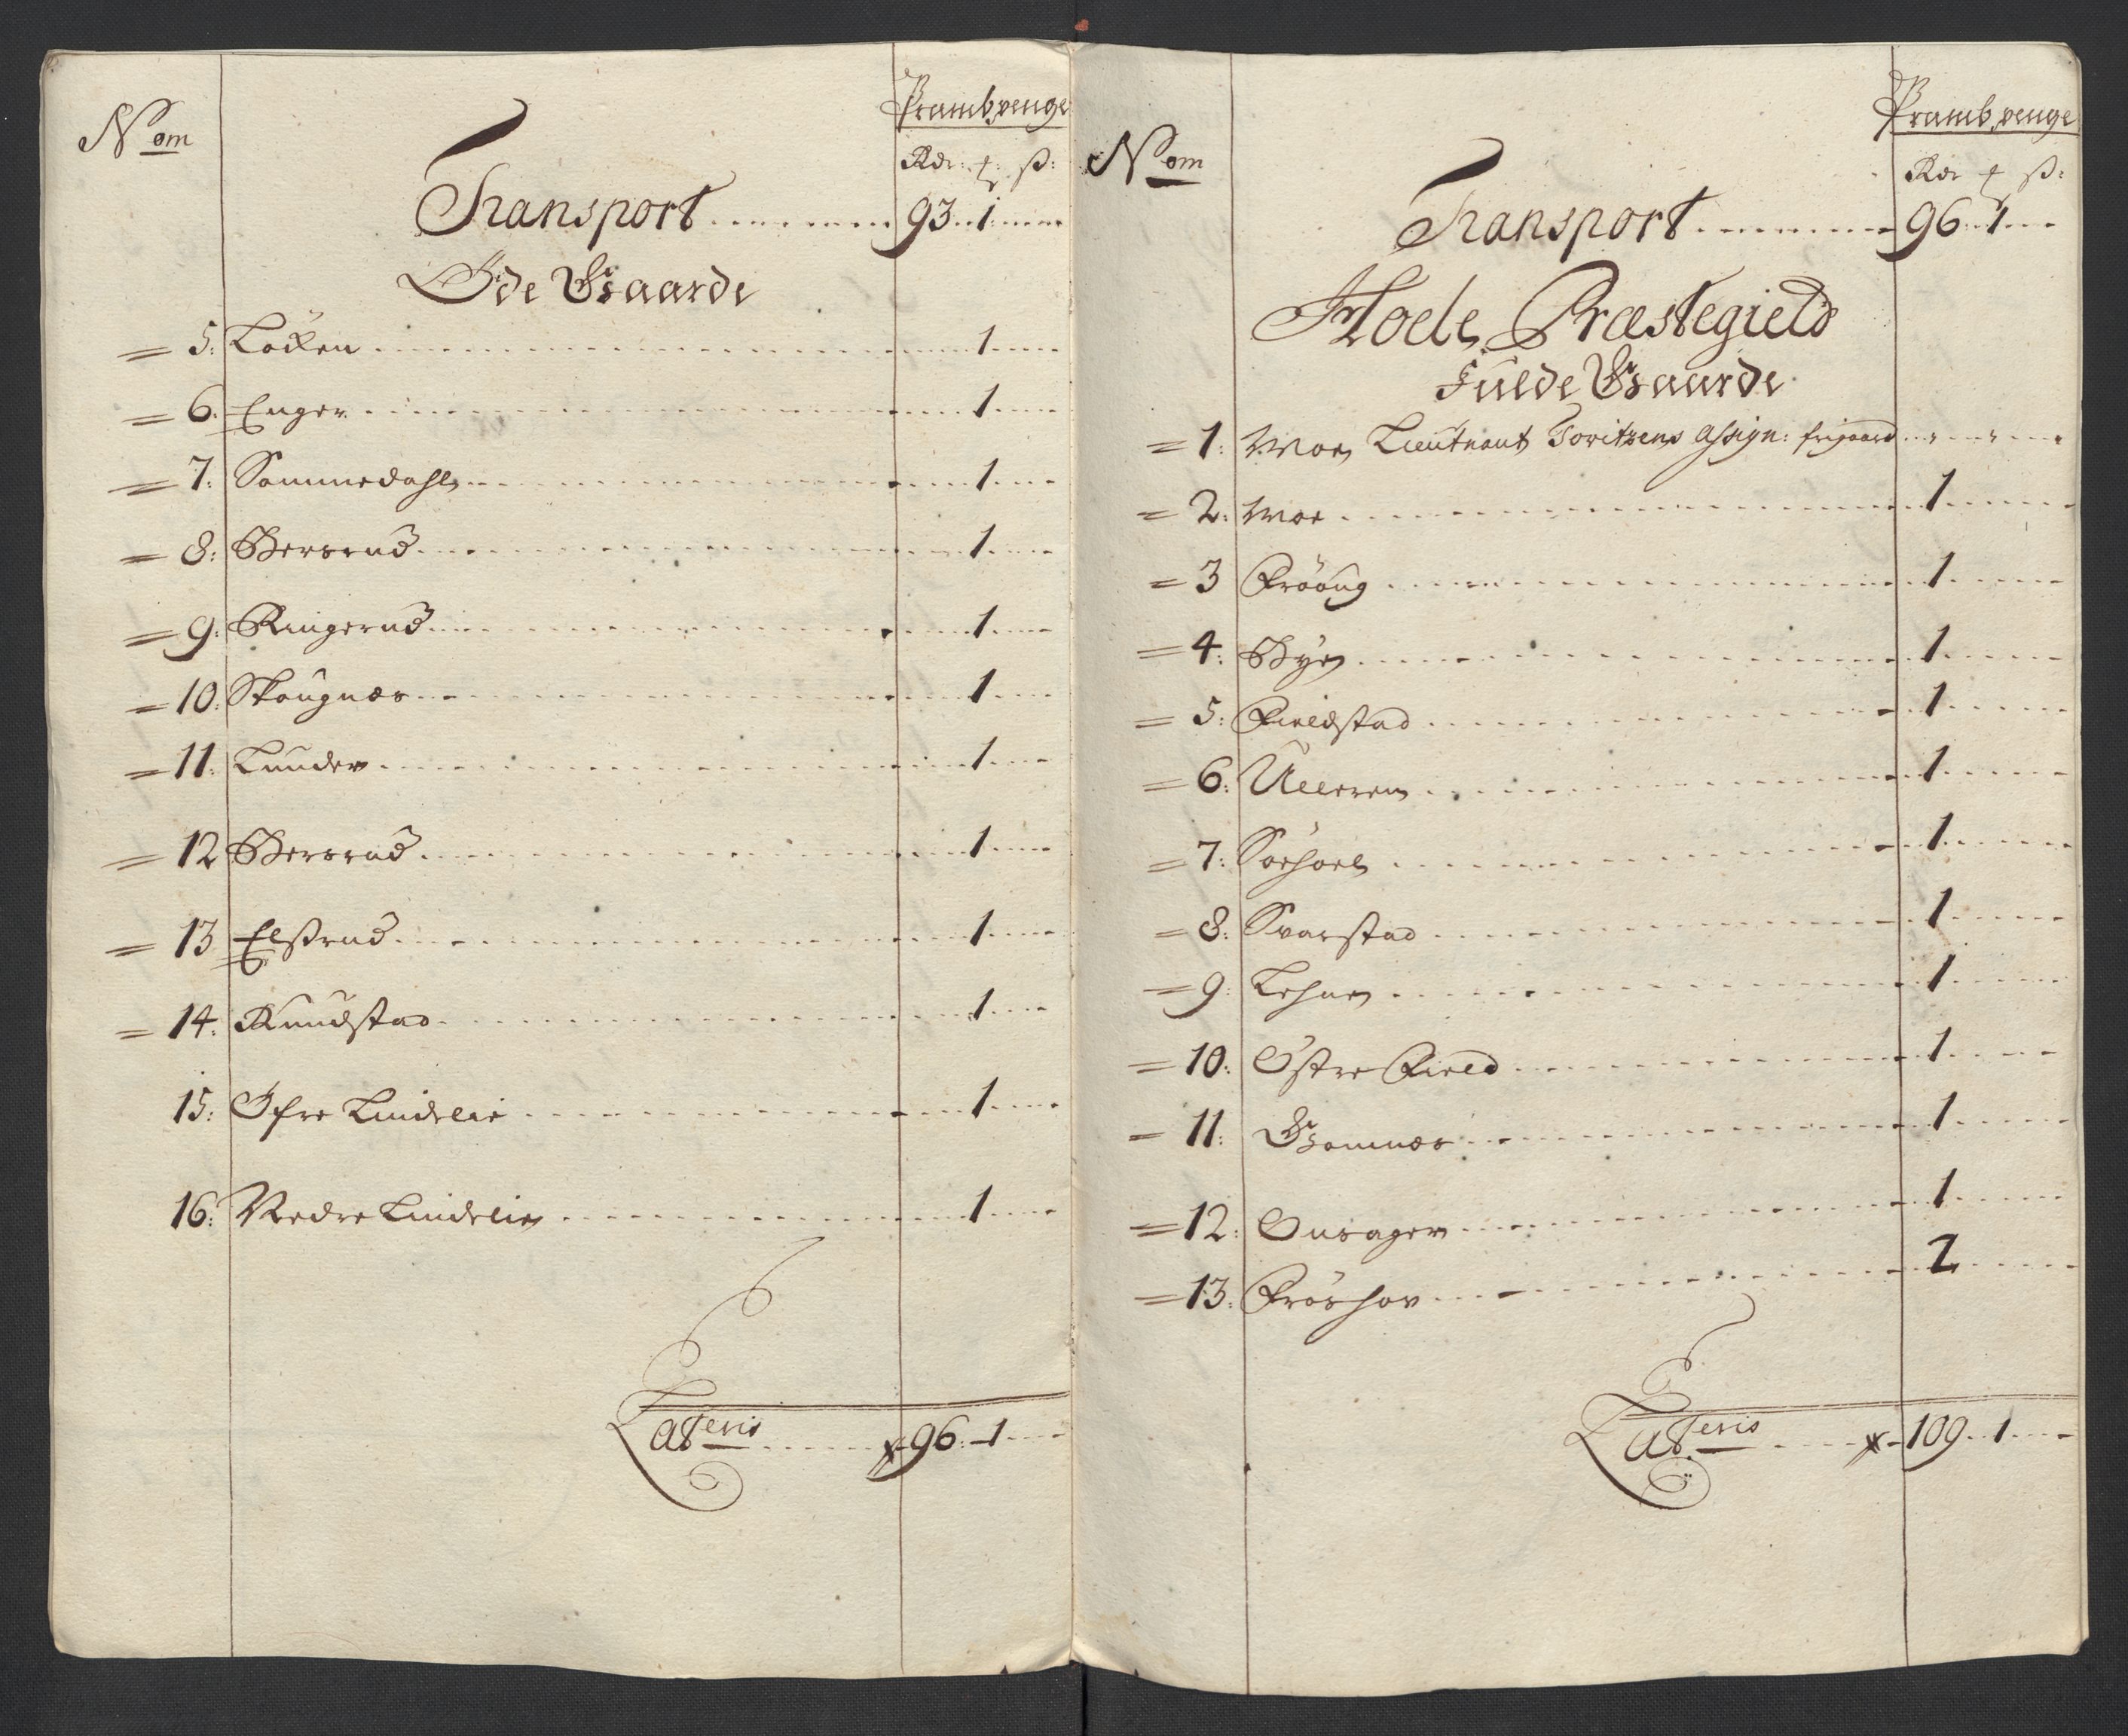 Nom
Prambpenge
Rdr: ß:
Transport 93 1
Øde Gaarde
= 5: Løcken 1
= 6: Enger 1
= 7: Sommedahl 1
= 8: Bersrud 1
= 9: Ringerud 1
= 10: Skougnæs 1
= 11: Lunder 1
= 12 Bersrud 1
= 13 Elsrud 1
= 14: Knudstad 1
15: Øfre Lindelie 1
16: Nedre Lindelie 1
Lateris 96 1
Nom
Prambpenge
Rdr ß:
Transport 96 1
Hoele Præstegield
Fulde Gaarde
= 1: Moe Lieutnant Assign: frigaard
= 2: Moe 1
= 3 Frøoug 1
= 4: Bye 1
= 5: Fieldstad 1
= 6: Ulleren 1
= 7: Sørhoel 1
= 8: Svarstad 1
= 9: Lehne 1
= 10: Østre Field 1
= 11: Gomnæs 1
= 12: Onsager 1
= 13: Frøshov 2
Lateris 109 1